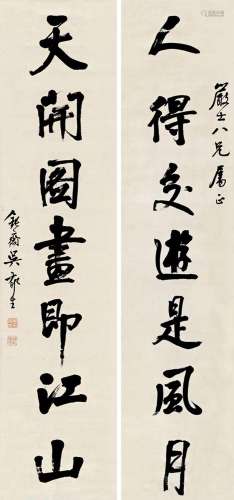 嚴士八兄屬正
人得交遊是風月
天開圖畫即江山
鈍齋吳郁生